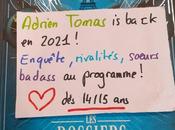 Adrien Tomas is back
en 2021 !
Enquête, rivalités, soeurs
badass au programme !
dès 14/15 ans
LES
DOSSIERS